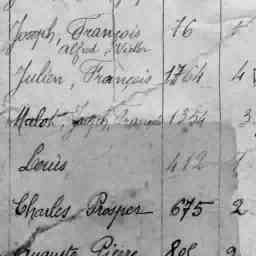 Joseph, François 76 1
Alfred, Victor
Julien, François 1764 4
Malot, Joseph, François 1354 3
Louis 412 1
Charles Prosper 675 2
Auguste Pierre 808 2